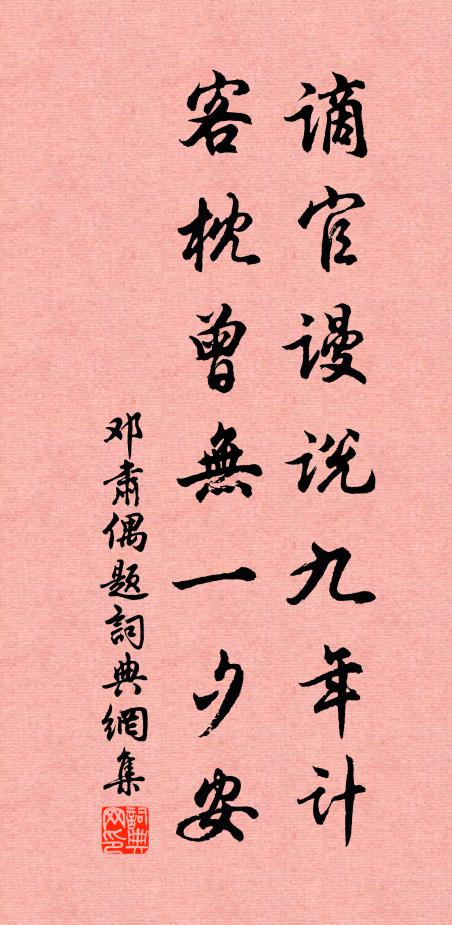 谪官谩说九年计
客枕曾無一夕安
邓肃偶题詞典網集
詞典网印